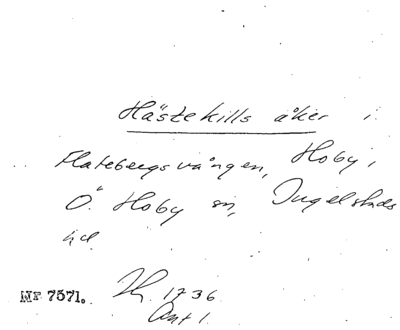 Hästekills åker i
Flatebergsvången, Hoby,
Ö. Hoby sn, Ingelstads
hd
Nr 7571. Lh. 1736
Ant 1.